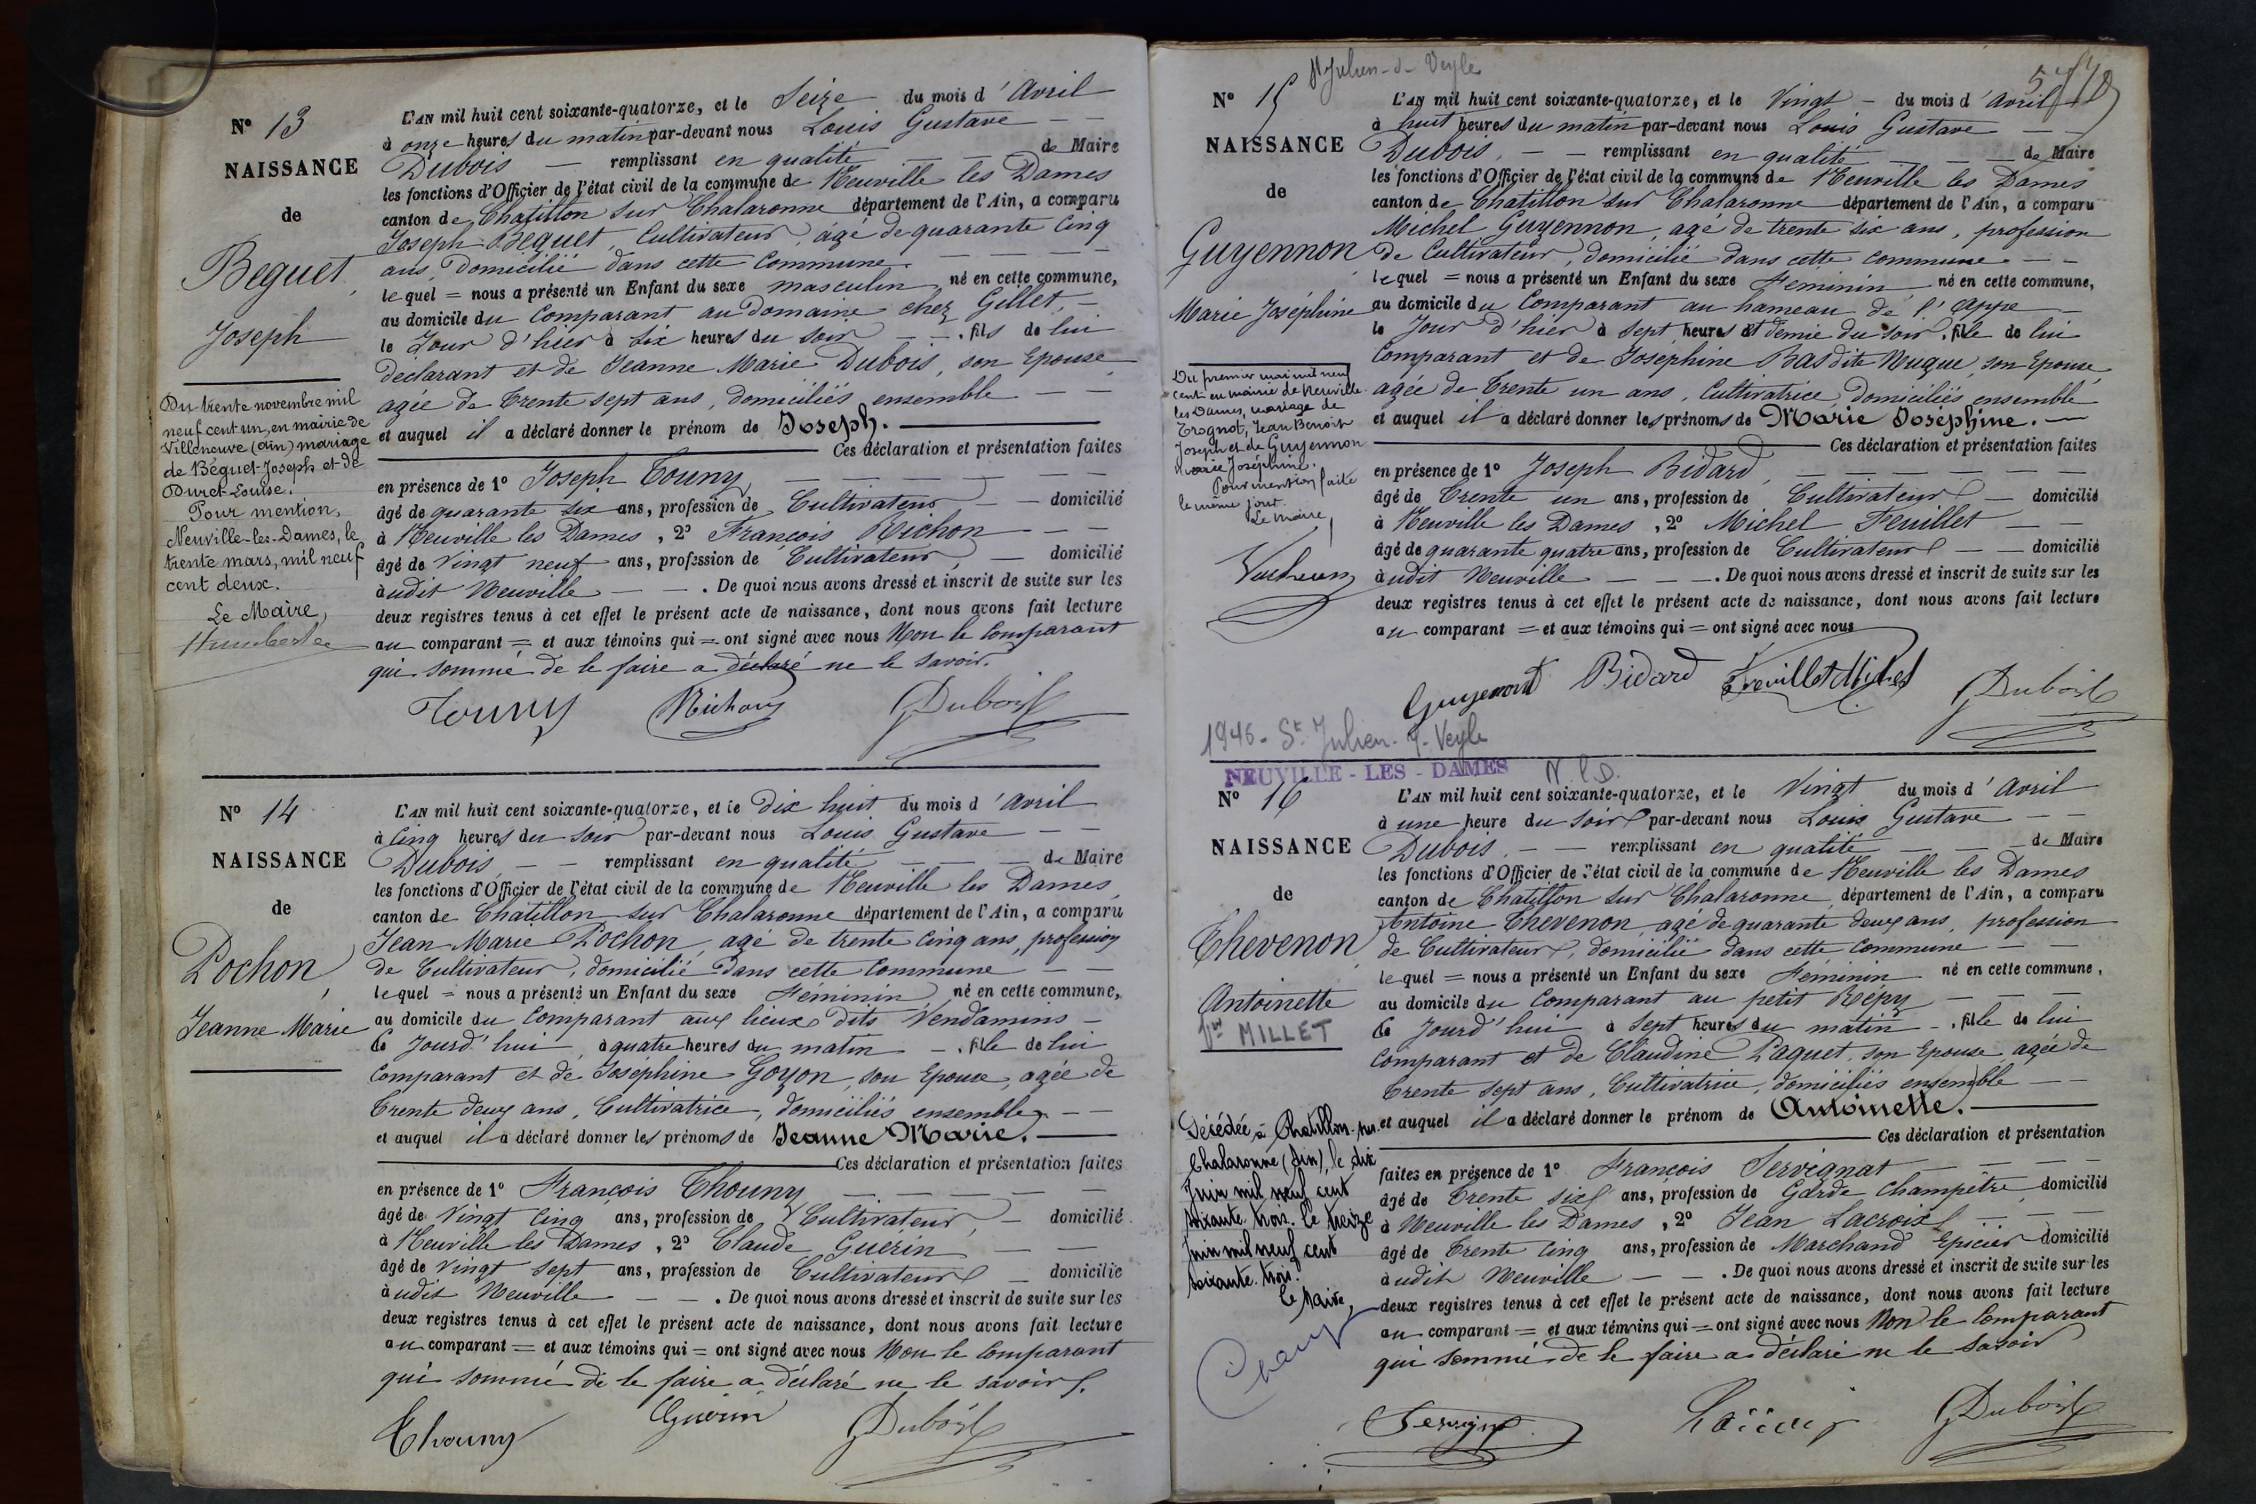 N° 13
NAISSANCE
de
Beguet
Joseph
Du trente novembre mil
neuf cent un, en mairie de
Villeneuve (Ain) mariage
de Béguet Joseph et de
Duret Louise.
Pour mention,
Neuville-les-Dames, le
trente mars, mil neuf
cent deux.
Le Maire,
L'AN mil huit cent soixante-quatorze, et le Seize du mois d'Avril
à onze heures du matin par-devant nous Louis Gustave
Dubois remplissant en qualité de Maire
les fonctions d'Officier de l'état civil de la commune de Neuville les Dames
canton de Chatillon sur Chalaronne département de l'Ain, a comparu
Joseph Beguet, Cultivateur, agé de quarante cinq
ans, Domicilié dans cette Commune.
lequel = nous a présenté un Enfant du sexe masculin né en cette commune,
au domicile du Comparant au domaine chez Gillet,
le Jour d'hier à Six heures du soir . fils de lui
declarant et de Jeanne Marie Dubois, son Epouse,
agée de Trente sept ans, domiciliés ensemble
et auquel il a déclaré donner le prénom de Joseph.
Ces déclaration et présentation faites
en présence de 1° Joseph Touny
âgé de quarante six ans, profession de Cultivateur domicilié
à Neuville les Dames, 2° François Richon
âgé de Vingt neuf ans, profession de Cultivateur, domicilié
audit Neuville . De quoi nous avons dressé et inscrit de suite sur les
deux registres tenus à cet effet le présent acte de naissance, dont nous avons fait lecture
au comparant = et aux témoins qui = ont signé avec nous Non le Comparant
qui sommé de le faire a déclaré ne le savoir.
Touny Richon GDubois
N° 14
NAISSANCE
de
Pochon,
Jeanne Marie
L'AN mil huit cent soixante-quatorze, et le Dix huit du mois d'Avril
à Cinq heures du soir par-devant nous Louis Gustave
Dubois, remplissant en qualité de Maire
les fonctions d'Officier de l'état civil de la commune de Neuville les Dames,
canton de Chatillon sur Chalaronne département de l'Ain, a comparu
Jean Marie Pochon, agé de trente Cinq ans, profession
de Cultivateur, domicilié dans cette Commune
lequel = nous a présenté un Enfant du sexe Féminin né en cette commune,
au domicile du Comparant aux lieux dits Vendamins
le Jourd'hui à quatre heures du matin . fille de lui
Comparant et de Joséphine Goyon, son Epouse, agée de
Trente deux ans, Cultivatrice, domiciliés ensemble
et auquel il a déclaré donner les prénoms de Jeanne Marie.
Ces déclaration et présentation faites
en présence de 1° François Thouny
âgé de Vingt Cinq ans, profession de Cultivateur, domicilié
à Neuville les Dames, 2° Claude Guerin
âgé de Vingt Sept ans, profession de Cultivateur domicilié
audit Neuville . De quoi nous avons dressé et inscrit de suite sur les
deux registres tenus à cet effet le présent acte de naissance, dont nous avons fait lecture
au comparant = et aux témoins qui = ont signé avec nous Non le Comparant
qui sommé de le faire a déclaré ne le savoir.
Thouny Guerin GDubois
St Julien-s-Veyle
N° 15
NAISSANCE
de
Guyennon
Marie Joséphine
Du premier mai mil neuf
cent en mairie de Neuville
les Dames, mariage de
Trognot, Jean Benoit
Joseph et de Guyennon
Marie Joséphine.
Pour mention faite
le même jour.
Le Maire
L'AN mil huit cent soixante-quatorze, et le Vingt du mois d'Avril
à huit heures du matin par-devant nous Louis Gustave
Dubois, remplissant en qualité de Maire
les fonctions d'Officier de l'état civil de la commune de Neuville les Dames
canton de Chatillon sur Chalaronne département de l'Ain, a comparu
Michel Guyennon, agé de trente six ans, profession
de Cultivateur, domicilié dans cette commune
lequel = nous a présenté un Enfant du sexe Féminin né en cette commune,
au domicile du Comparant au hameau de l'Appe
le Jour d'hier à sept heures et demie du soir . fille de lui
Comparant et de Joséphine Bas dite Nugue, son Epouse
agée de Trente un ans, Cultivatrice, domiciliés ensemble
et auquel il a déclaré donner les prénoms de Marie Joséphine.
Ces déclaration et présentation faites
en présence de 1° Joseph Bidard
âgé de Trente un ans, profession de Cultivateur domicilié
à Neuville les Dames, 2° Michel Feuillet
âgé de quarante quatre ans, profession de Cultivateur domicilié
audit Neuville . De quoi nous avons dressé et inscrit de suite sur les
deux registres tenus à cet effet le présent acte de naissance, dont nous avons fait lecture
au comparant = et aux témoins qui = ont signé avec nous
Bidard GDubois
1946 - St Julien-s-Veyle
NEUVILLE-LES-DAMES N.l.D.
N° 16
NAISSANCE
de
Thevenon,
Antoinette
Vve MILLET
Décédée à Chatillon-sur-
Chalaronne (Ain), le dix
Juin mil neuf cent
soixante trois. Le treize
Juin mil neuf cent
soixante trois.
Le Maire,
L'AN mil huit cent soixante-quatorze, et le Vingt du mois d'Avril
à une heure du soir par-devant nous Louis Gustave
Dubois, remplissant en qualité de Maire
les fonctions d'Officier de l'état civil de la commune de Neuville les Dames
canton de Chatillon sur Chalaronne, département de l'Ain, a comparu
Antoine Thevenon, agé de quarante deux ans, profession
de Cultivateur, domicilié dans cette Commune
lequel = nous a présenté un Enfant du sexe Féminin né en cette commune,
au domicile du Comparant au petit Répy
le Jourd'hui à Sept heures du matin . fille de lui
Comparant et de Claudine Paquet, son Epouse, agée de
Trente sept ans, Cultivatrice, domiciliés ensemble
et auquel il a déclaré donner le prénom de Antoinette.
Ces déclaration et présentation
faites en présence de 1° François Servignat
âgé de Trente six ans, profession de Garde Champêtre domicilié
à Neuville les Dames, 2° Jean Lacroix
âgé de Trente Cinq ans, profession de Marchand Epicier domicilié
audit Neuville . De quoi nous avons dressé et inscrit de suite sur les
deux registres tenus à cet effet le présent acte de naissance, dont nous avons fait lecture
au comparant = et aux témoins qui = ont signé avec nous Non le Comparant
qui sommé de le faire a déclaré ne le savoir
GDubois